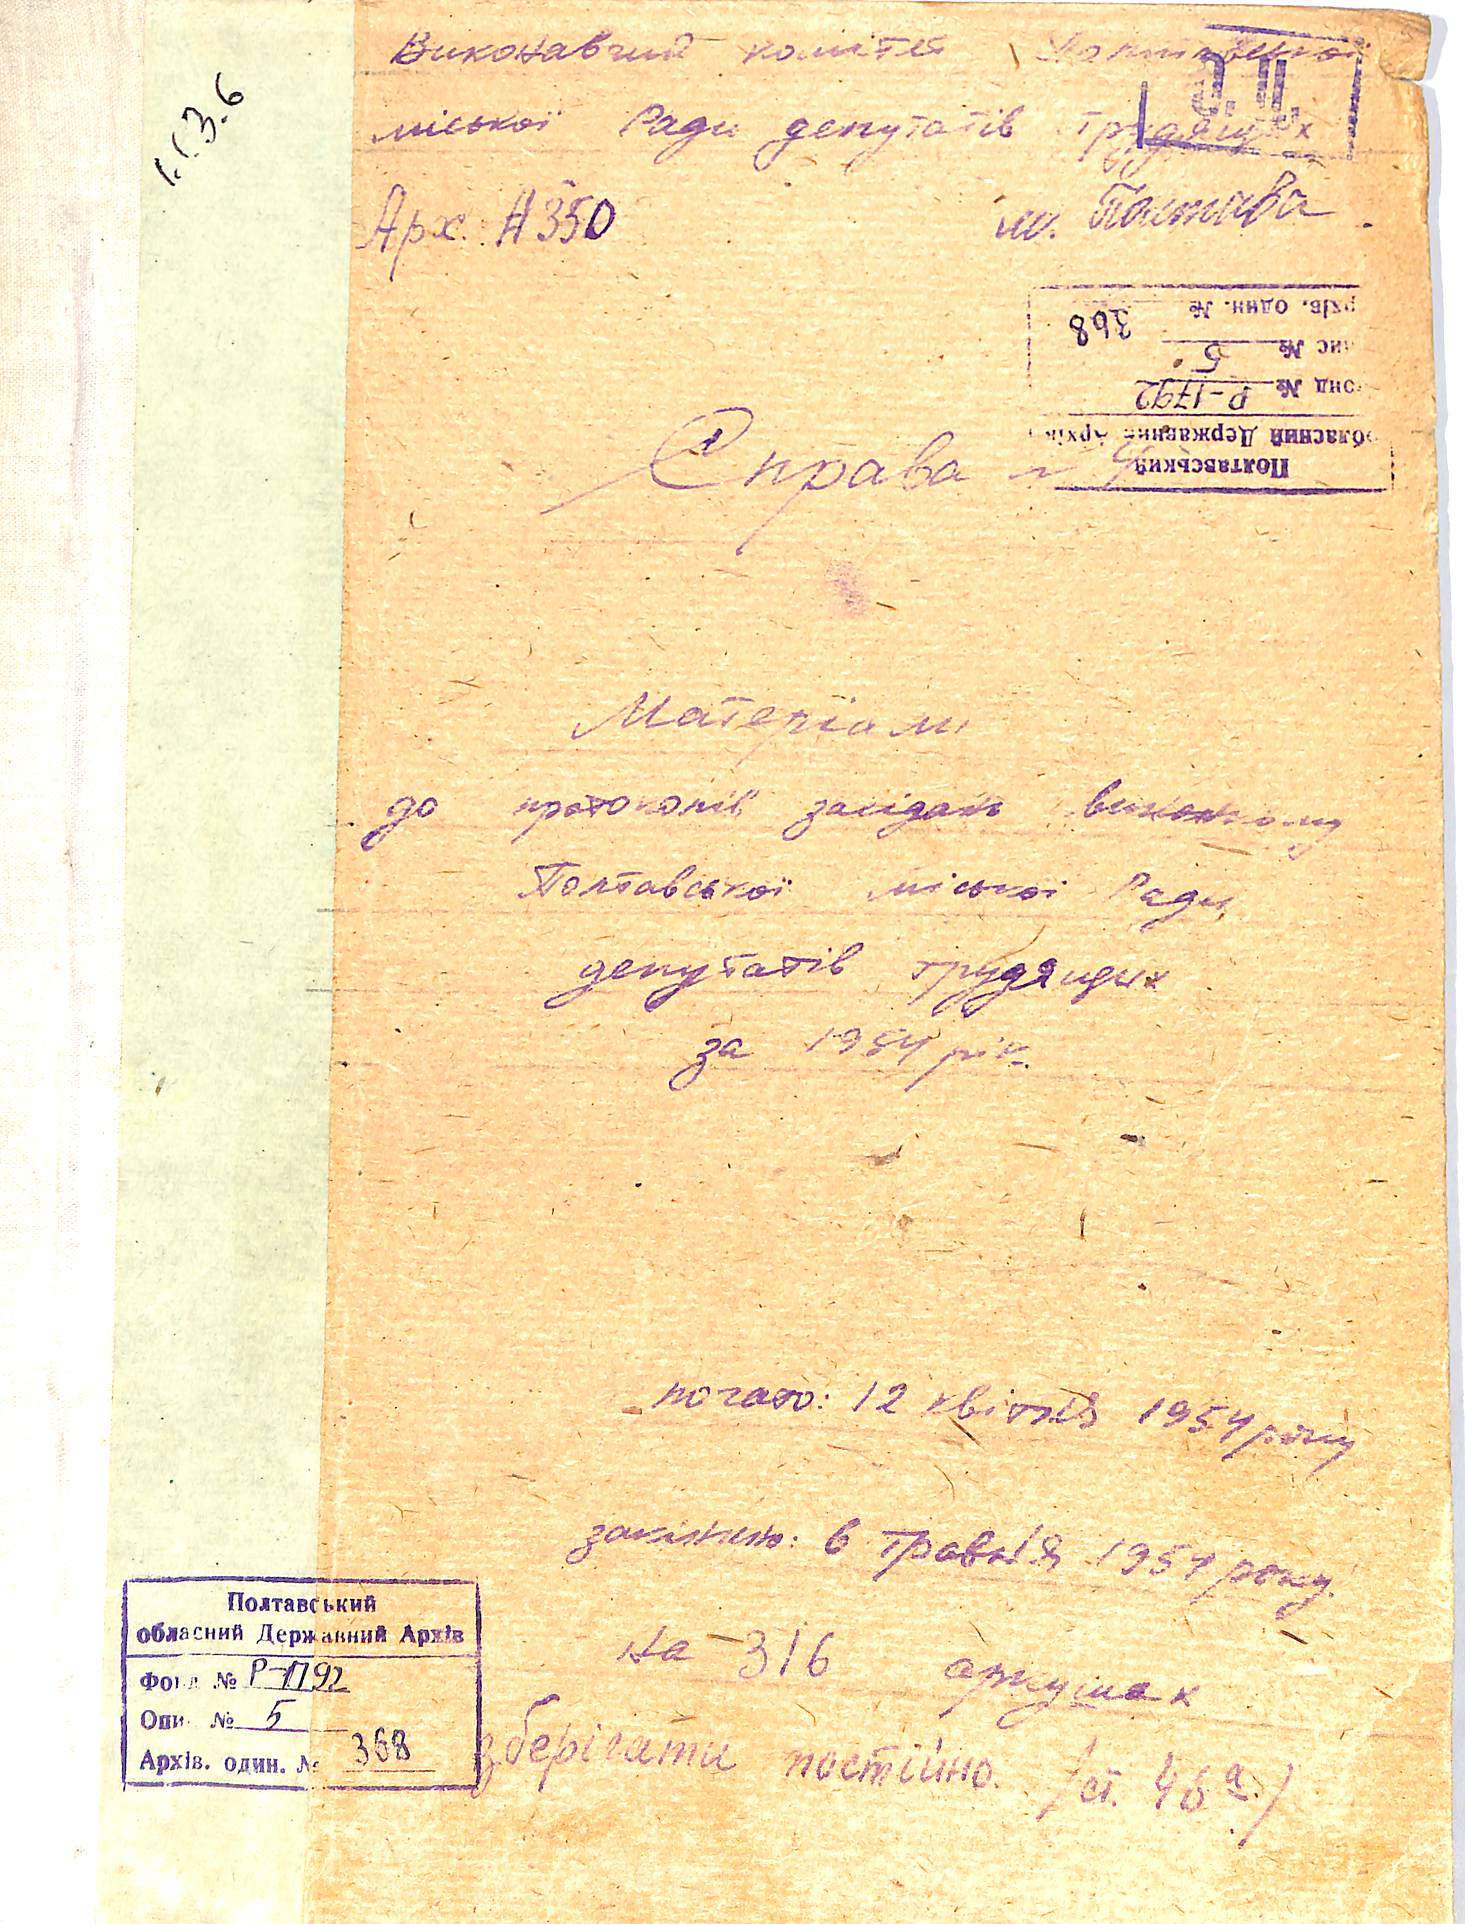 1.1.3.6
Виконавчий комітет Полтавської
міської Ради депутатів трудящих
О.Ц.
Арх. №350
м. Полтава
Полтавський
обласний Державний Архів
Фонд № Р-1792
Опис № 5
Архів. один. № 368
Справа №
Матеріали
до протоколів засідань виконкому
Полтавської міської Ради
депутатів трудящих
за 1954 рік.
почато: 12 квітня 1954 року
закінчено: 6 травня 1954 року.
на 316 аркушах
зберігати постійно. /ст. 46а/
Полтавський
обласний Державний Архів
Фонд № Р-1792
Опис № 5
Архів. один. № 368